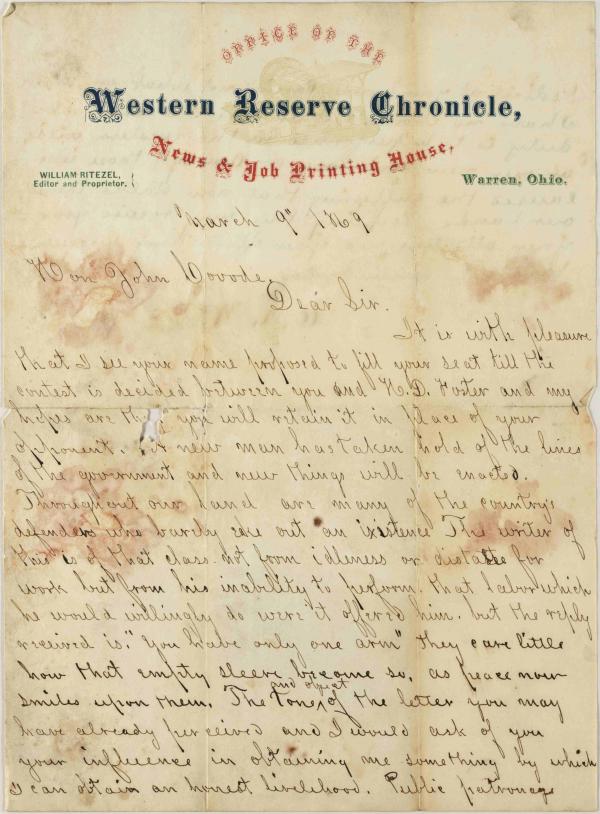 OFFICE OF THE
Western Reserve Chronicle,
News & Job Printing House,
WILLIAM RITEZEL,
Editor and Proprietor.
Warren, Ohio.
March 9" 1869
Hon John Covode,
Dear Sir.
It is with pleasure
that I see your name proposed to fill your seat till the
contest is decided between you and H.D. Foster and my
hopes are that you will retain it in place of your
opponent. A new man has taken hold of the lines
of the government and new things will be enacted.
Throughout our land are many of the country's
defenders who barely eke out an existence The writer of
this is of that class. not from idleness or distaste for
work but from his inability to perform that labor which
he would willingly do were it offered him. but the reply
received is. "You have only one arm" They care little
how that empty sleeve become so, as peace now
smiles upon them. The tone and object of the letter you may
have already perceived and I would ask of you
your influence in obtaining me something by which
I can obtain an honest livelihood. Public patronage